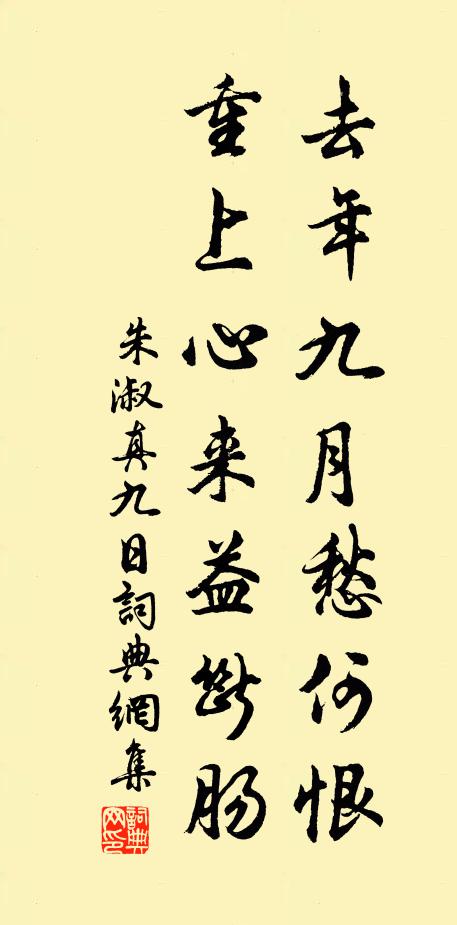 去年九月愁何恨
重上心来益断肠
朱淑真九日詞典網集
詞典網印